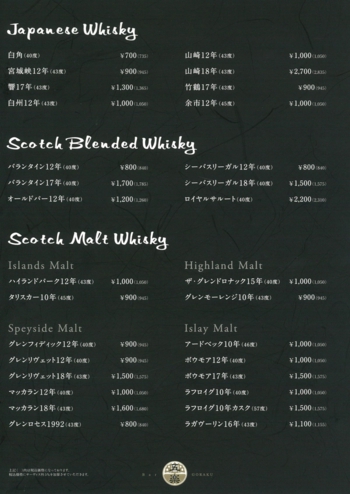 Japanese Whisky
白角(40度) ¥700(735)
宮城峡12年(43度) ¥900(945)
響17年(43度) ¥1,300(1,365)
白州12年(43度) ¥1,000(1,050)
山崎12年(43度) ¥1,000(1,050)
山崎18年(43度) ¥2,700(2,835)
竹鶴17年(43度) ¥900(945)
余市12年(45度) ¥1,000(1,050)
Scotch Blended Whisky
バランタイン12年(40度) ¥800(840)
バランタイン17年(40度) ¥1,700(1,785)
オールドパー12年(40度) ¥1,200(1,260)
シーバスリーガル12年(40度) ¥800(840)
シーバスリーガル18年(40度) ¥1,500(1,575)
ロイヤルサルート(40度) ¥2,200(2,310)
Scotch Malt Whisky
Islands Malt
ハイランドパーク12年(43度) ¥1,000(1,050)
タリスカー10年(45度) ¥900(945)
Highland Malt
ザ・グレンドロナック15年(40度) ¥1,000(1,050)
グレンモーレンジ10年(43度) ¥900(945)
Speyside Malt
グレンフィディック12年(40度) ¥900(945)
グレンリヴェット12年(40度) ¥900(945)
グレンリヴェット18年(43度) ¥1,500(1,575)
マッカラン12年(40度) ¥1,000(1,050)
マッカラン18年(43度) ¥1,600(1,680)
グレンロセス1992(43度) ¥800(840)
Islay Malt
アードベック10年(46度) ¥1,000(1,050)
ボウモア12年(40度) ¥1,000(1,050)
ボウモア17年(43度) ¥1,500(1,575)
ラフロイグ10年(43度) ¥1,000(1,050)
ラフロイグ10年カスク(57度) ¥1,500(1,575)
ラガヴーリン16年(43度) ¥1,100(1,155)